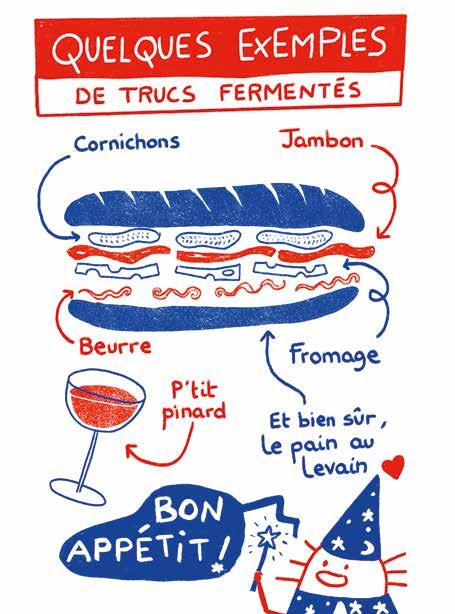 QUELQUES EXEMPLES
DE TRUCS FERMENTÉS
Cornichons
Jambon
Beurre
Fromage
P'tit
pinard
Et bien sûr,
le pain au
Levain
BON
APPÉTIT !